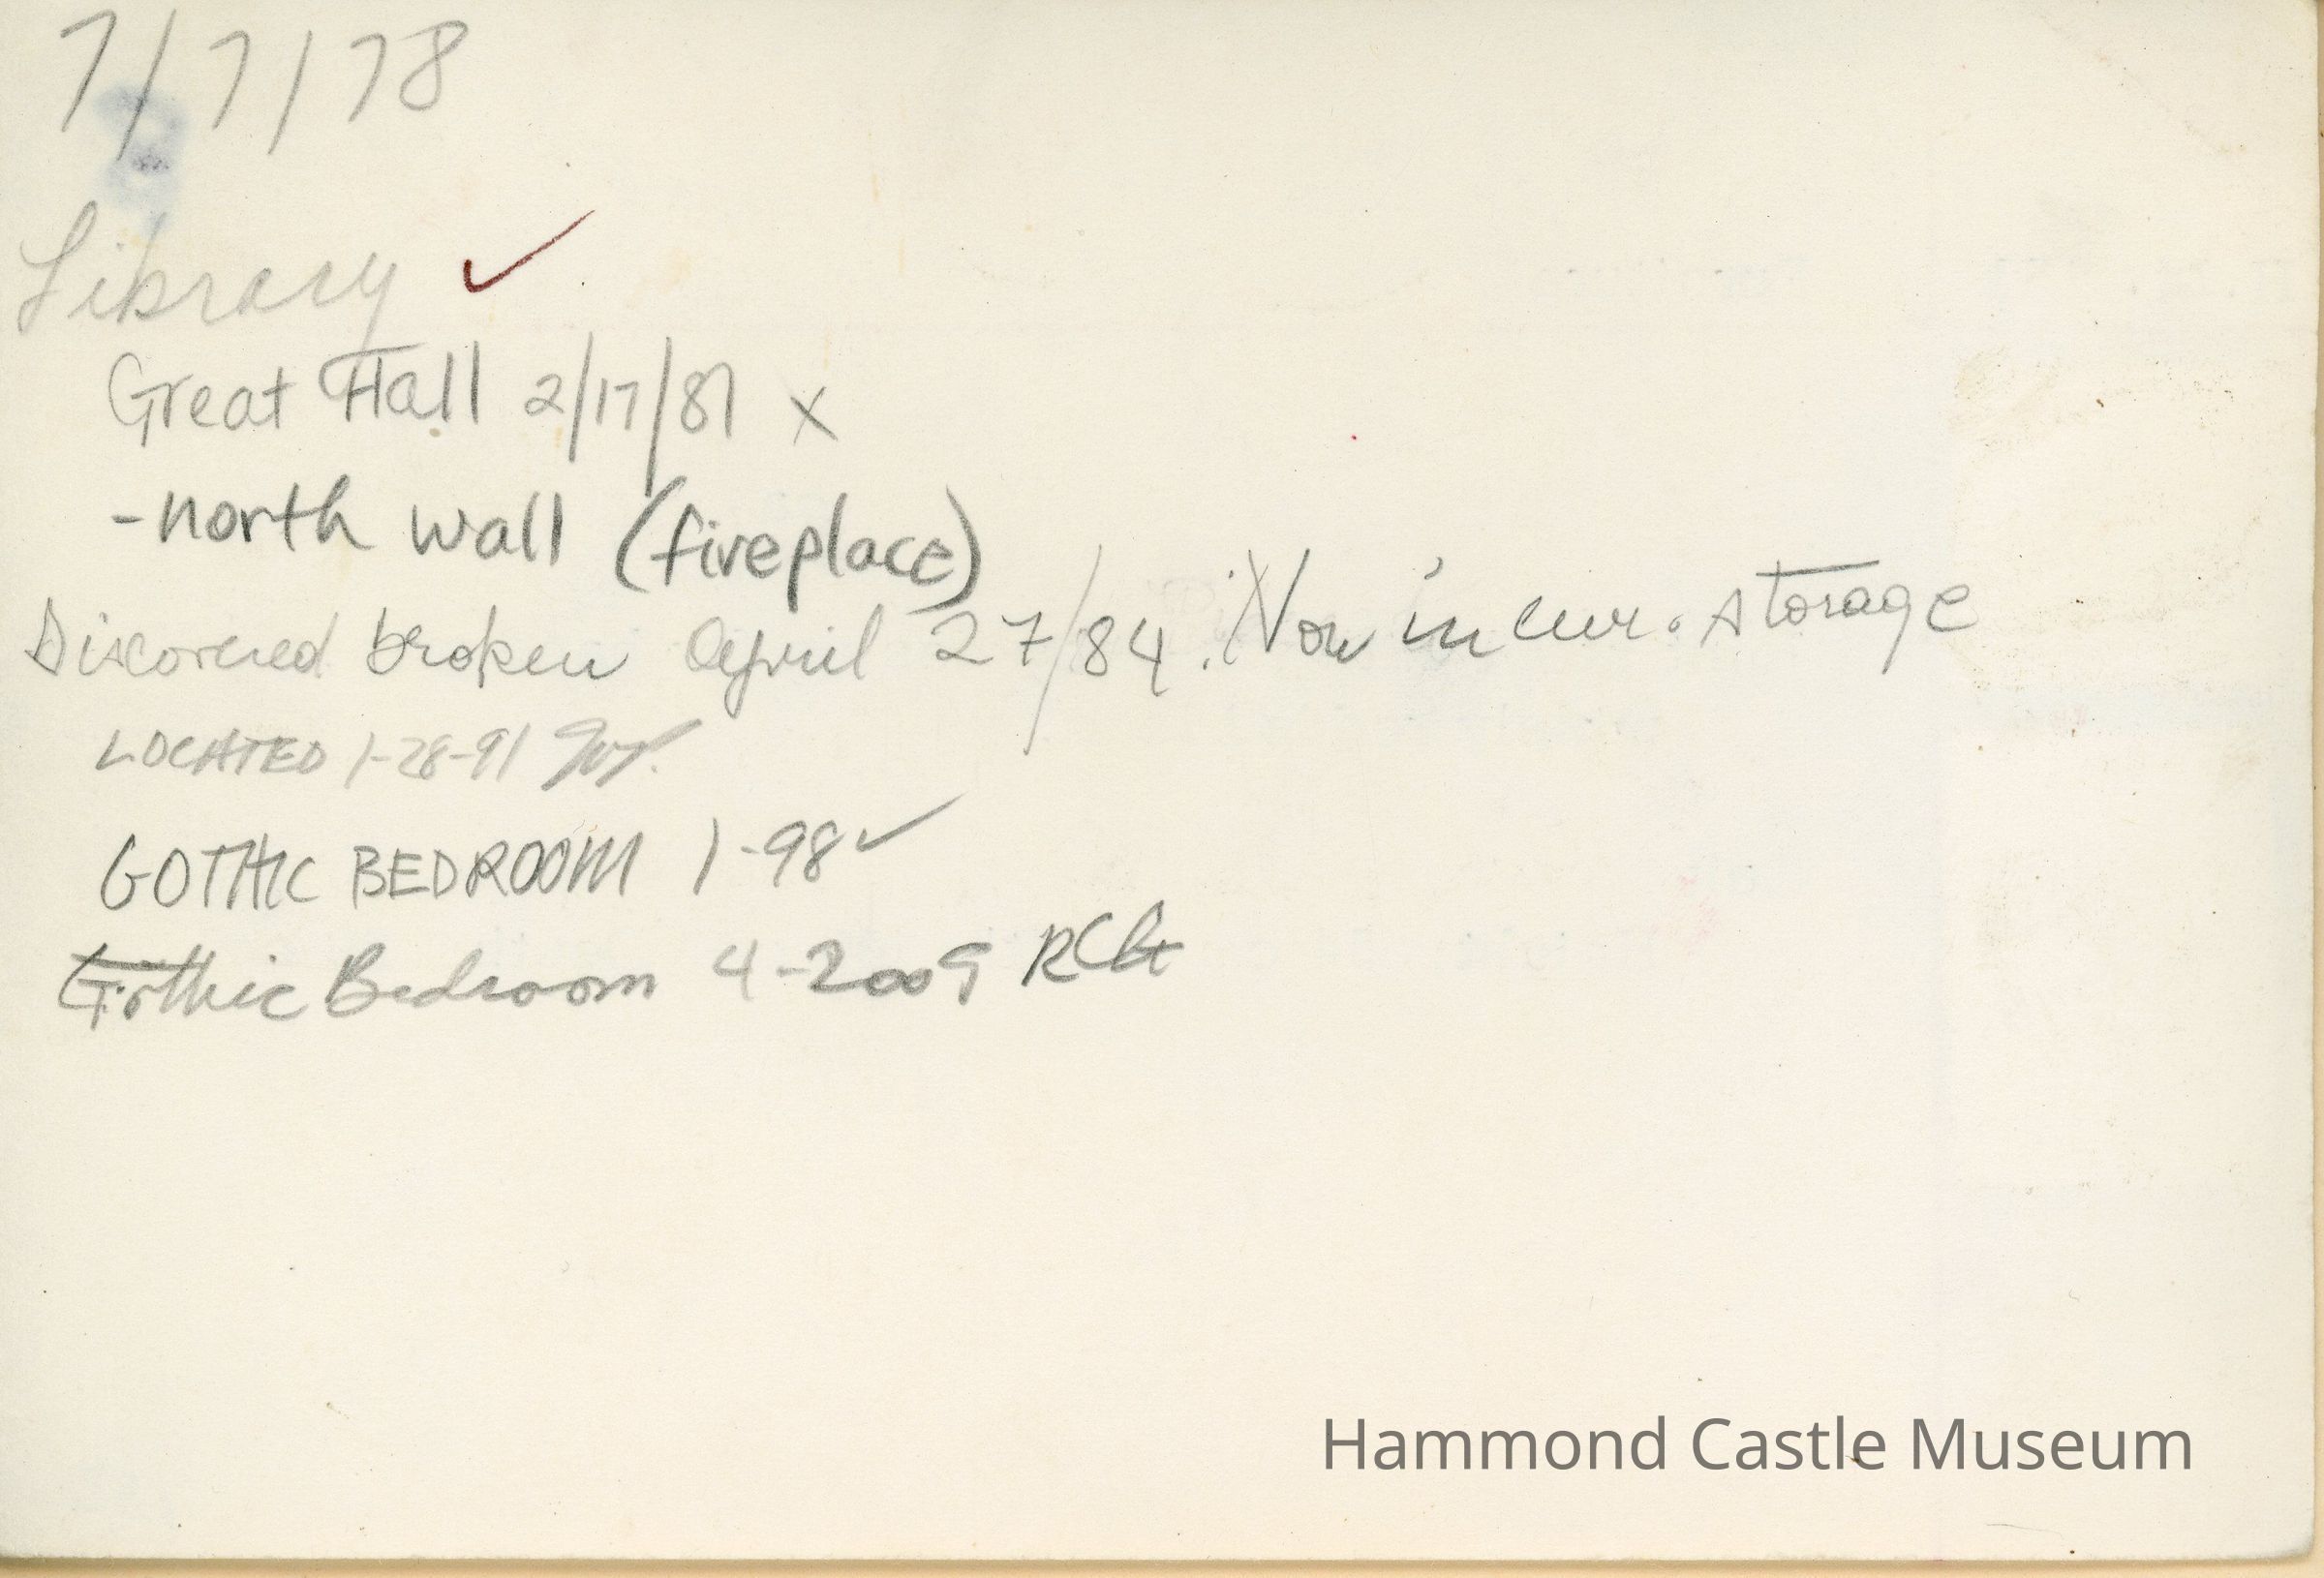 7/7/78
Library ✓
Great Hall 2/17/81 x
-north wall (fireplace)
Discovered broken April 27/84. Now in cur. storage
LOCATED 1-28-91
GOTHIC BEDROOM 1-98 ✓
Gothic Bedroom 4-2009
Hammond Castle Museum